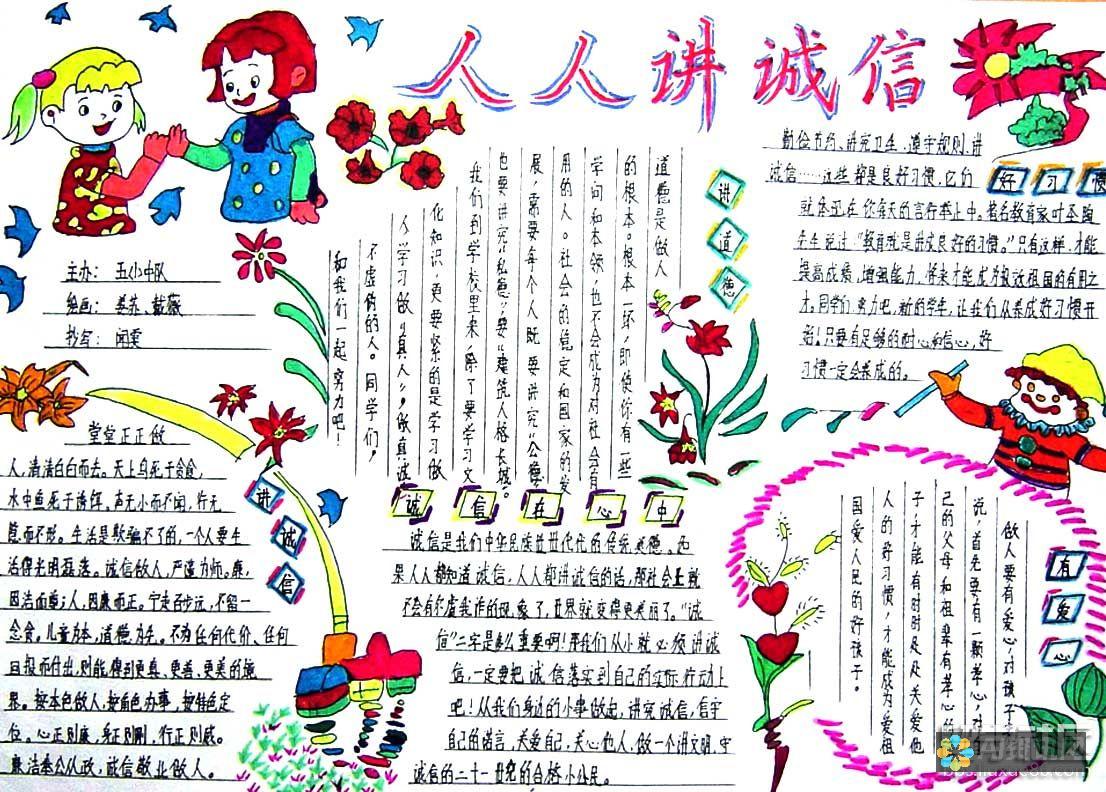 人人讲诚信
主办：五小中队
绘画：姜苏、戴薇
抄写：闻雯
讲道德
道德是做人
的根本。根本一坏，即使你有一些
学问和本领，也不会成为对社会有
用的人。社会的稳定和国家的发
展，需要每个人既要讲究“公德”
也要讲究“私德”，要“建筑人格长城”。
我们到学校里来，除了要学习文
化知识，更要紧的是学习做
人，学习做“真人”，做真诚
不虚伪的人。同学们，
和我们一起努力吧！
好习惯
勤俭节约、讲究卫生、遵守规则、讲
诚信……这些都是良好习惯，它们
就体现在你每天的言行举止中。著名教育家叶圣陶
先生说过：“教育就是培养良好的习惯。”只有这样，才能
提高成绩，增强能力，将来才能成为报效祖国的有用之
才。同学们努力吧，新的学年，让我们从养成好习惯开
始！只要有足够的耐心和信心，好
习惯一定会养成的。
讲诚信
堂堂正正做
人，清清白白而去。天上鸟死于贪食，
水中鱼死于诱饵。声无小而不闻，行无
隐而不形。生活是欺骗不了的，一个人要生
活得光明磊落。诚信做人，严谨为师。廉，
因洁而尊；人，因廉而正。宁走百步远，不留一
念贪。儿童为本，道德为先。不为任何代价、任何
回报而付出，则能得到更真、更善、更美的境
界。按本色做人，按角色办事，按特色定
位。心正则廉，身正则刚，行正则威。
廉洁奉公从政，诚信敬业做人。
诚信在心中
诚信是我们中华民族世世代代的传统美德。如
果人人都知道诚信，人人都讲诚信的话，那社会上就
不会有尔虞我诈的现象了，世界就变得更美丽了。“诚
信”二字是多么重要啊！那我们从小就必须讲诚
信，一定要把诚信落实到自己的实际行动上
吧！从我们身边的小事做起，讲究诚信，信守
自己的诺言，关爱自己，关心他人，做一个讲文明、守
诚信的二十一世纪的合格小公民。
有爱心
做人要有爱心，对孩子
说，首先要有一颗孝心，对
己的父母和祖辈有孝心的
子才能有时时处处关爱他
人的好习惯，才能成为爱祖
国爱人民的好孩子。